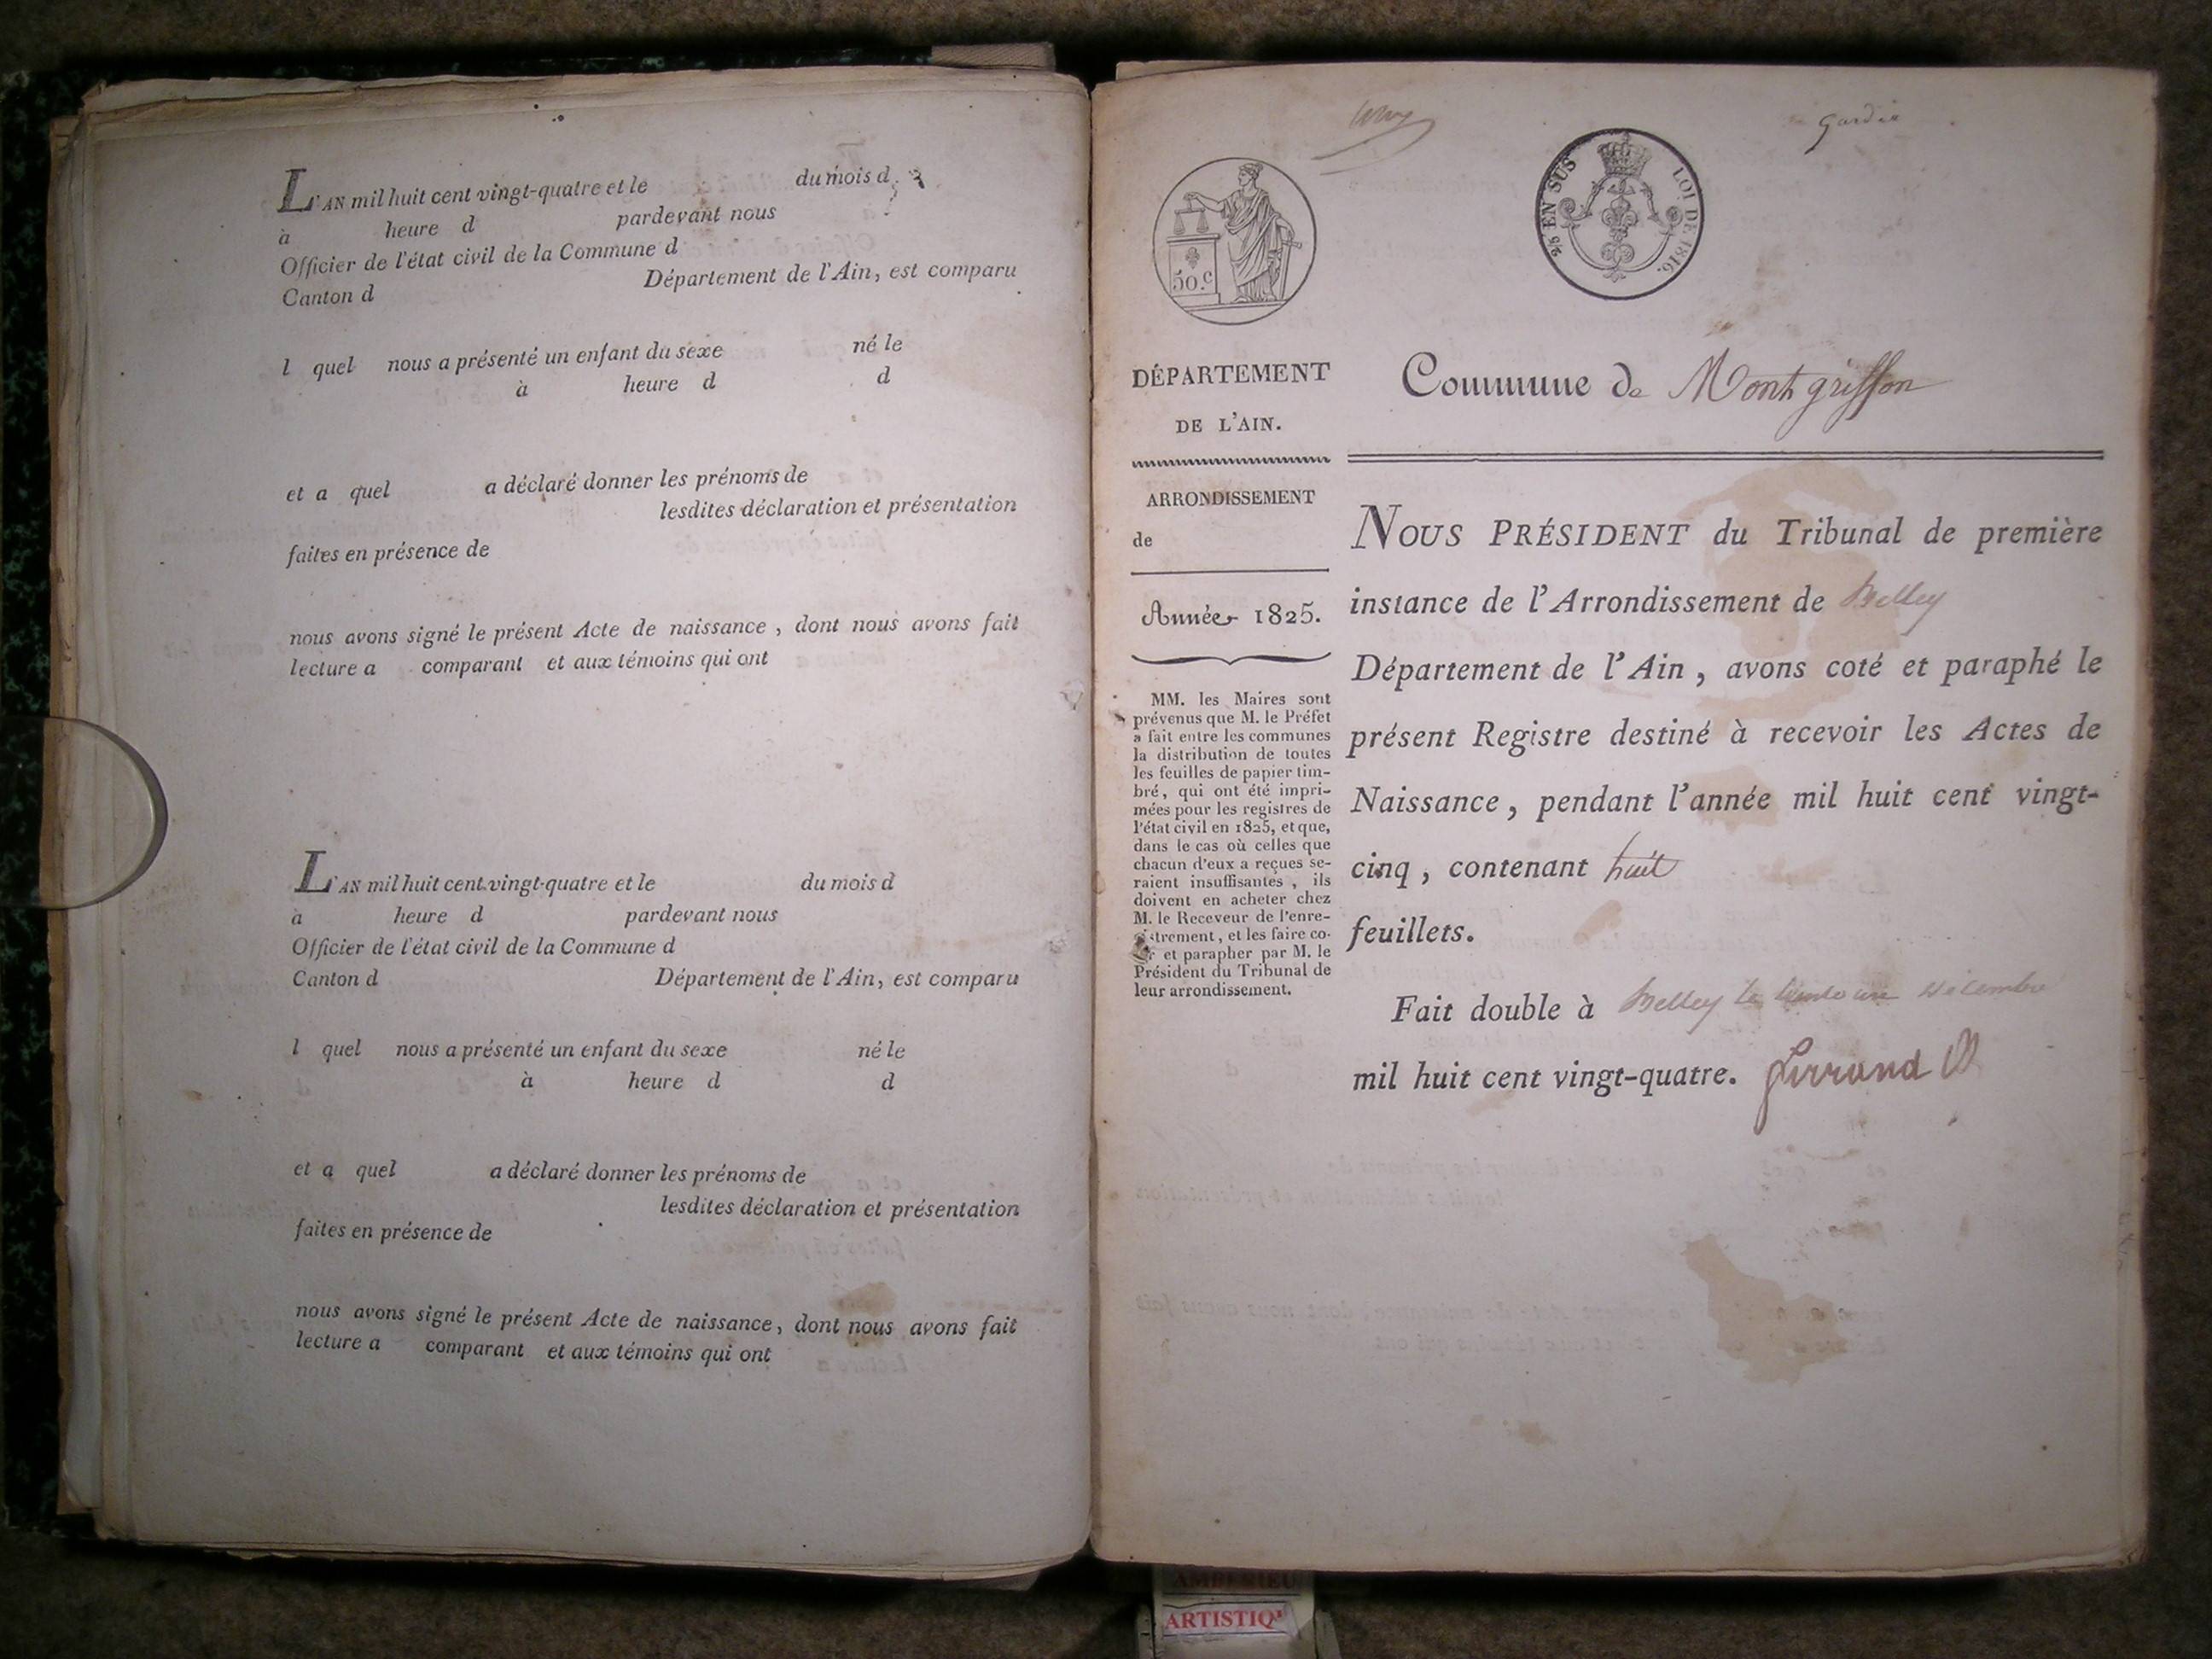 L'AN mil huit cent vingt-quatre et le du mois d
à heure d pardevant nous
Officier de l'état civil de la Commune d
Canton d Département de l'Ain, est comparu
l quel nous a présenté un enfant du sexe né le
à heure d d
et a quel a déclaré donner les prénoms de
lesdites déclaration et présentation
faites en présence de
nous avons signé le présent Acte de naissance, dont nous avons fait
lecture a comparant et aux témoins qui ont
L'AN mil huit cent vingt-quatre et le du mois d
à heure d pardevant nous
Officier de l'état civil de la Commune d
Canton d Département de l'Ain, est comparu
l quel nous a présenté un enfant du sexe né le
à heure d d
et a quel a déclaré donner les prénoms de
lesdites déclaration et présentation
faites en présence de
nous avons signé le présent Acte de naissance, dont nous avons fait
lecture a comparant et aux témoins qui ont
EN SUS
LOI DE 1816.
50.c
DÉPARTEMENT
DE L'AIN.
ARRONDISSEMENT
de
Année 1825.
MM. les Maires sont
prévenus que M. le Préfet
a fait entre les communes
la distribution de toutes
les feuilles de papier tim-
bré, qui ont été impri-
mées pour les registres de
l'état civil en 1825, et que,
dans le cas où celles que
chacun d'eux a reçues se-
raient insuffisantes, ils
doivent en acheter chez
M. le Receveur de l'enre-
gistrement, et les faire co-
ter et parapher par M. le
Président du Tribunal de
leur arrondissement.
Commune de Montgriffon
NOUS PRÉSIDENT du Tribunal de première
instance de l'Arrondissement de Belley
Département de l'Ain, avons coté et paraphé le
présent Registre destiné à recevoir les Actes de
Naissance, pendant l'année mil huit cent vingt-
cinq, contenant huit
feuillets.
Fait double à Belley le trente un décembre
mil huit cent vingt-quatre.
AMBERIEU
ARTISTIQ